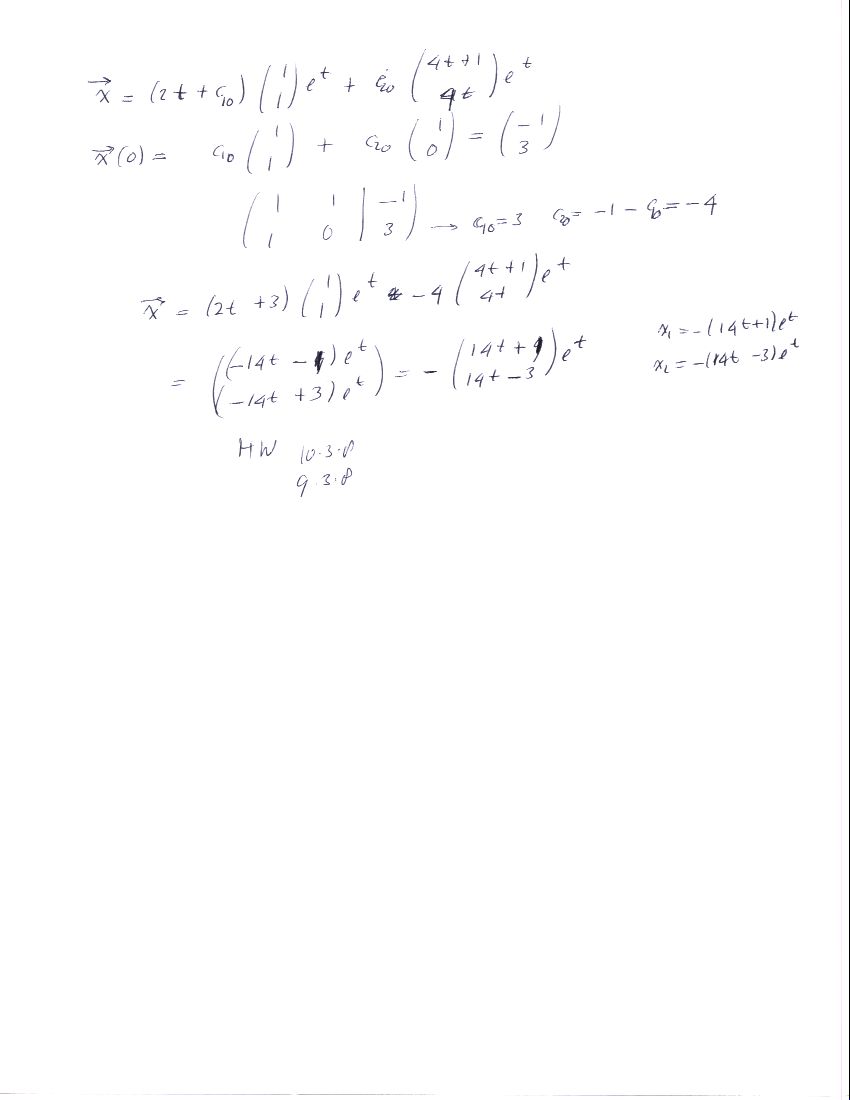 x⃗ = (2t + c₁₀) (1 1) eᵗ + c₂₀ (4t+1 4t) eᵗ
x⃗(0) = c₁₀ (1 1) + c₂₀ (1 0) = (-1 3)
(1 1 | -1
1 0 | 3) → c₁₀=3 c₂₀= -1 - c₁₀= -4
x⃗ = (2t +3) (1 1) eᵗ -4 (4t+1 4t) eᵗ
= ((-14t - 1) eᵗ (-14t +3) eᵗ) = - (14t + 1 14t - 3) eᵗ
x₁ = -(14t+1)eᵗ
x₂ = -(14t -3)eᵗ
HW 10.3.8
9.3.8